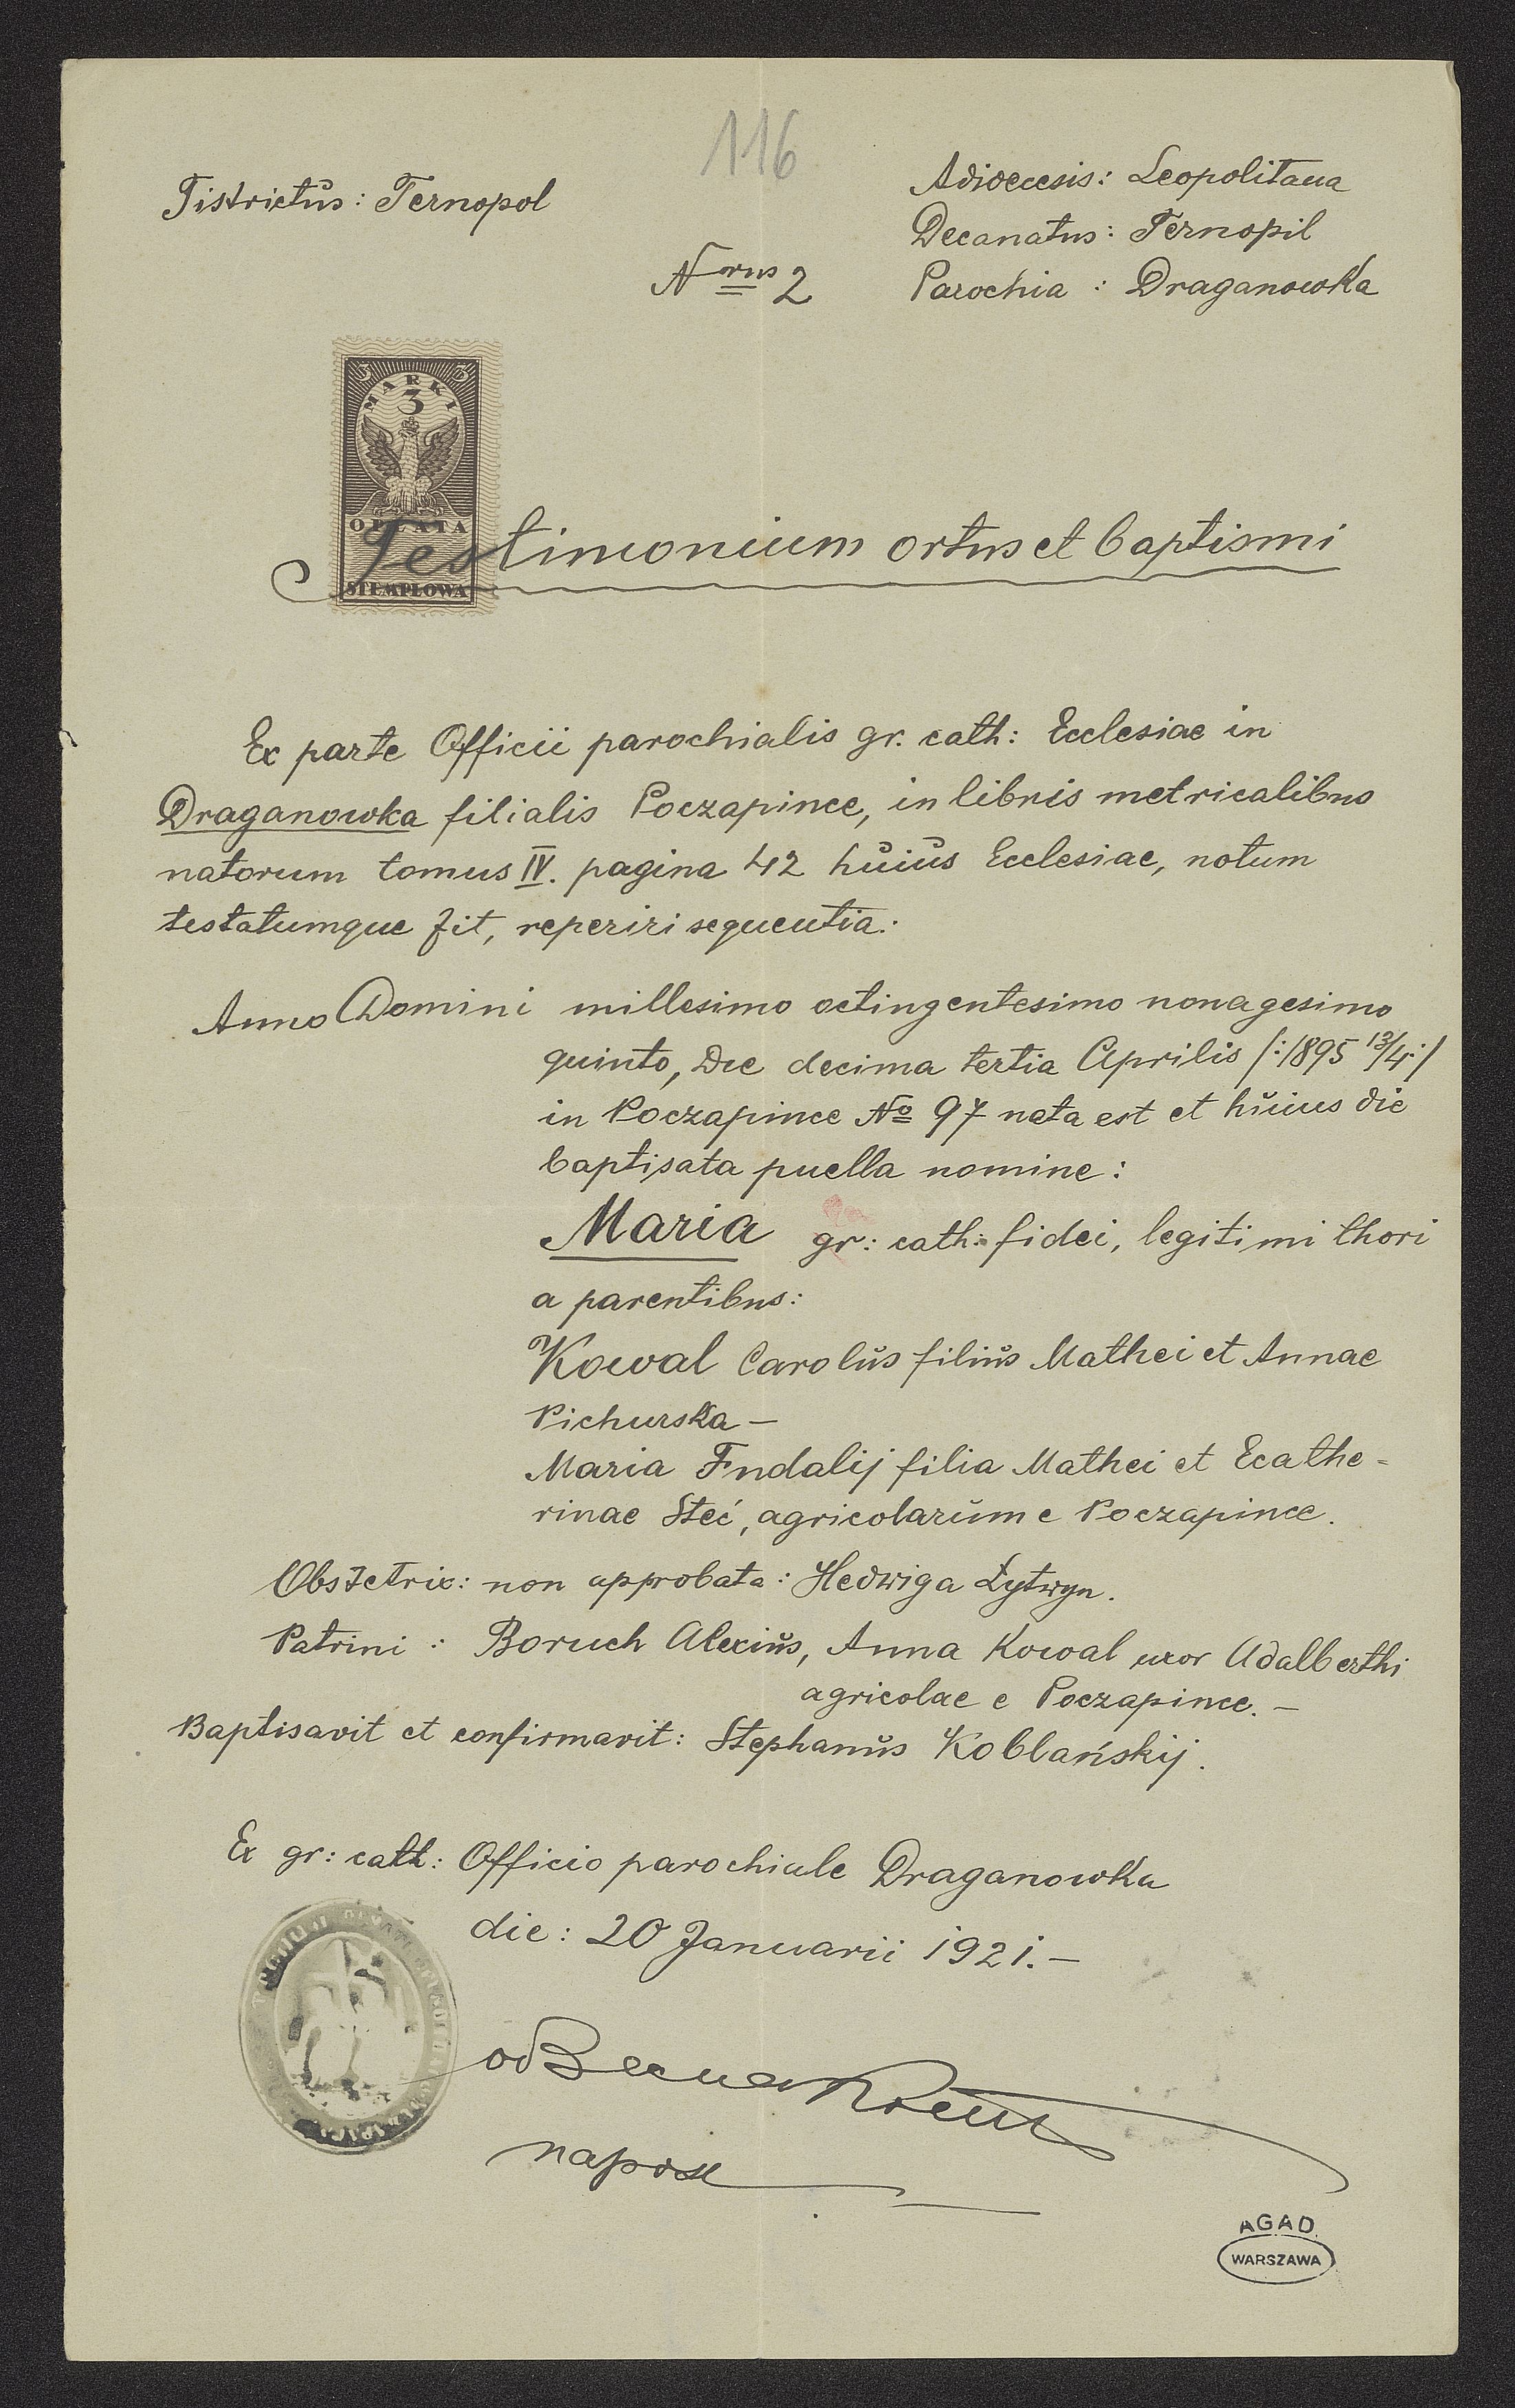 116
Districtŭs: Ternopol
Adioecesis: Leopolitana
Decanatus: Ternopil
Nrus 2
Parochia : Draganowka
3 3
MARKI
3
OPŁATA
STEMPLOWA
Testimonium ortus et baptismi
Ex parte Officii parochialis gr. cath: Ecclesiae in
Draganowka filialis Poczapince, in libris metricalibus
natorum tomus IV. pagina 42 hŭiŭs Ecclesiae, notum
testatumque fit, reperiri sequentia:
Anno Domini millesimo octingentesimo nonagesimo
quinto, Die decima tertia Aprilis /:1895 13/4:/
in Poczapince No 97 nata est et hŭius die
baptisata puella nomine:
Maria gr: cath: fidei, legitimi thori
a parentibus:
Kowal Carolŭs filiŭs Mathei et Annae
Pichurska –
Maria Fndalij filia Mathei et Ecathe-
rinae Steć, agricolarŭm e Poczapince.
Obstetrix: non approbata: Hedwiga Łytwyn.
Patrini : Boruch Alexiŭs, Anna Kowal uxor Adalberthi
agricolae e Poczapince. –
Baptisavit et confirmavit: Stephanŭs Koblańskij.
Ex gr: cath: Officio parochiale Draganowka
die: 20 Januarii 1921. –
A.G.A.D.
WARSZAWA